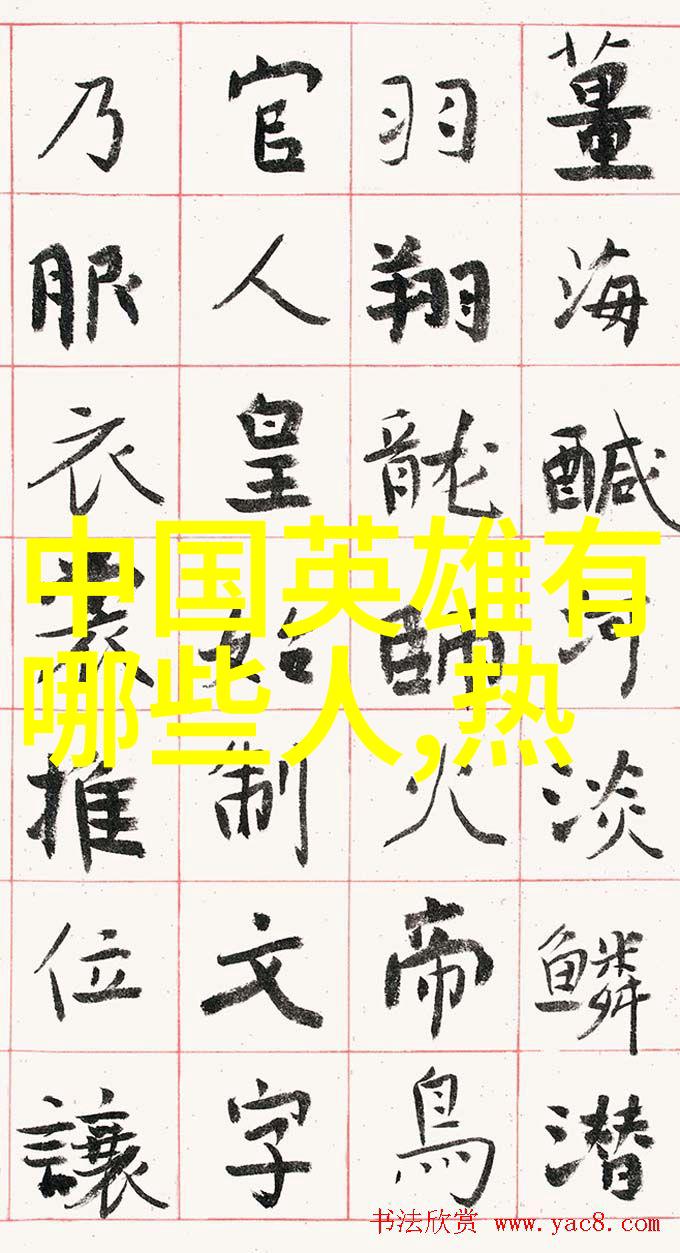 薑海醎河淡鱗潜
羽翔龍師火帝鳥
官人皇始制文字
乃服衣裳推位讓
中国英雄有
哪些人,热
书法欣赏 www.yac8.com